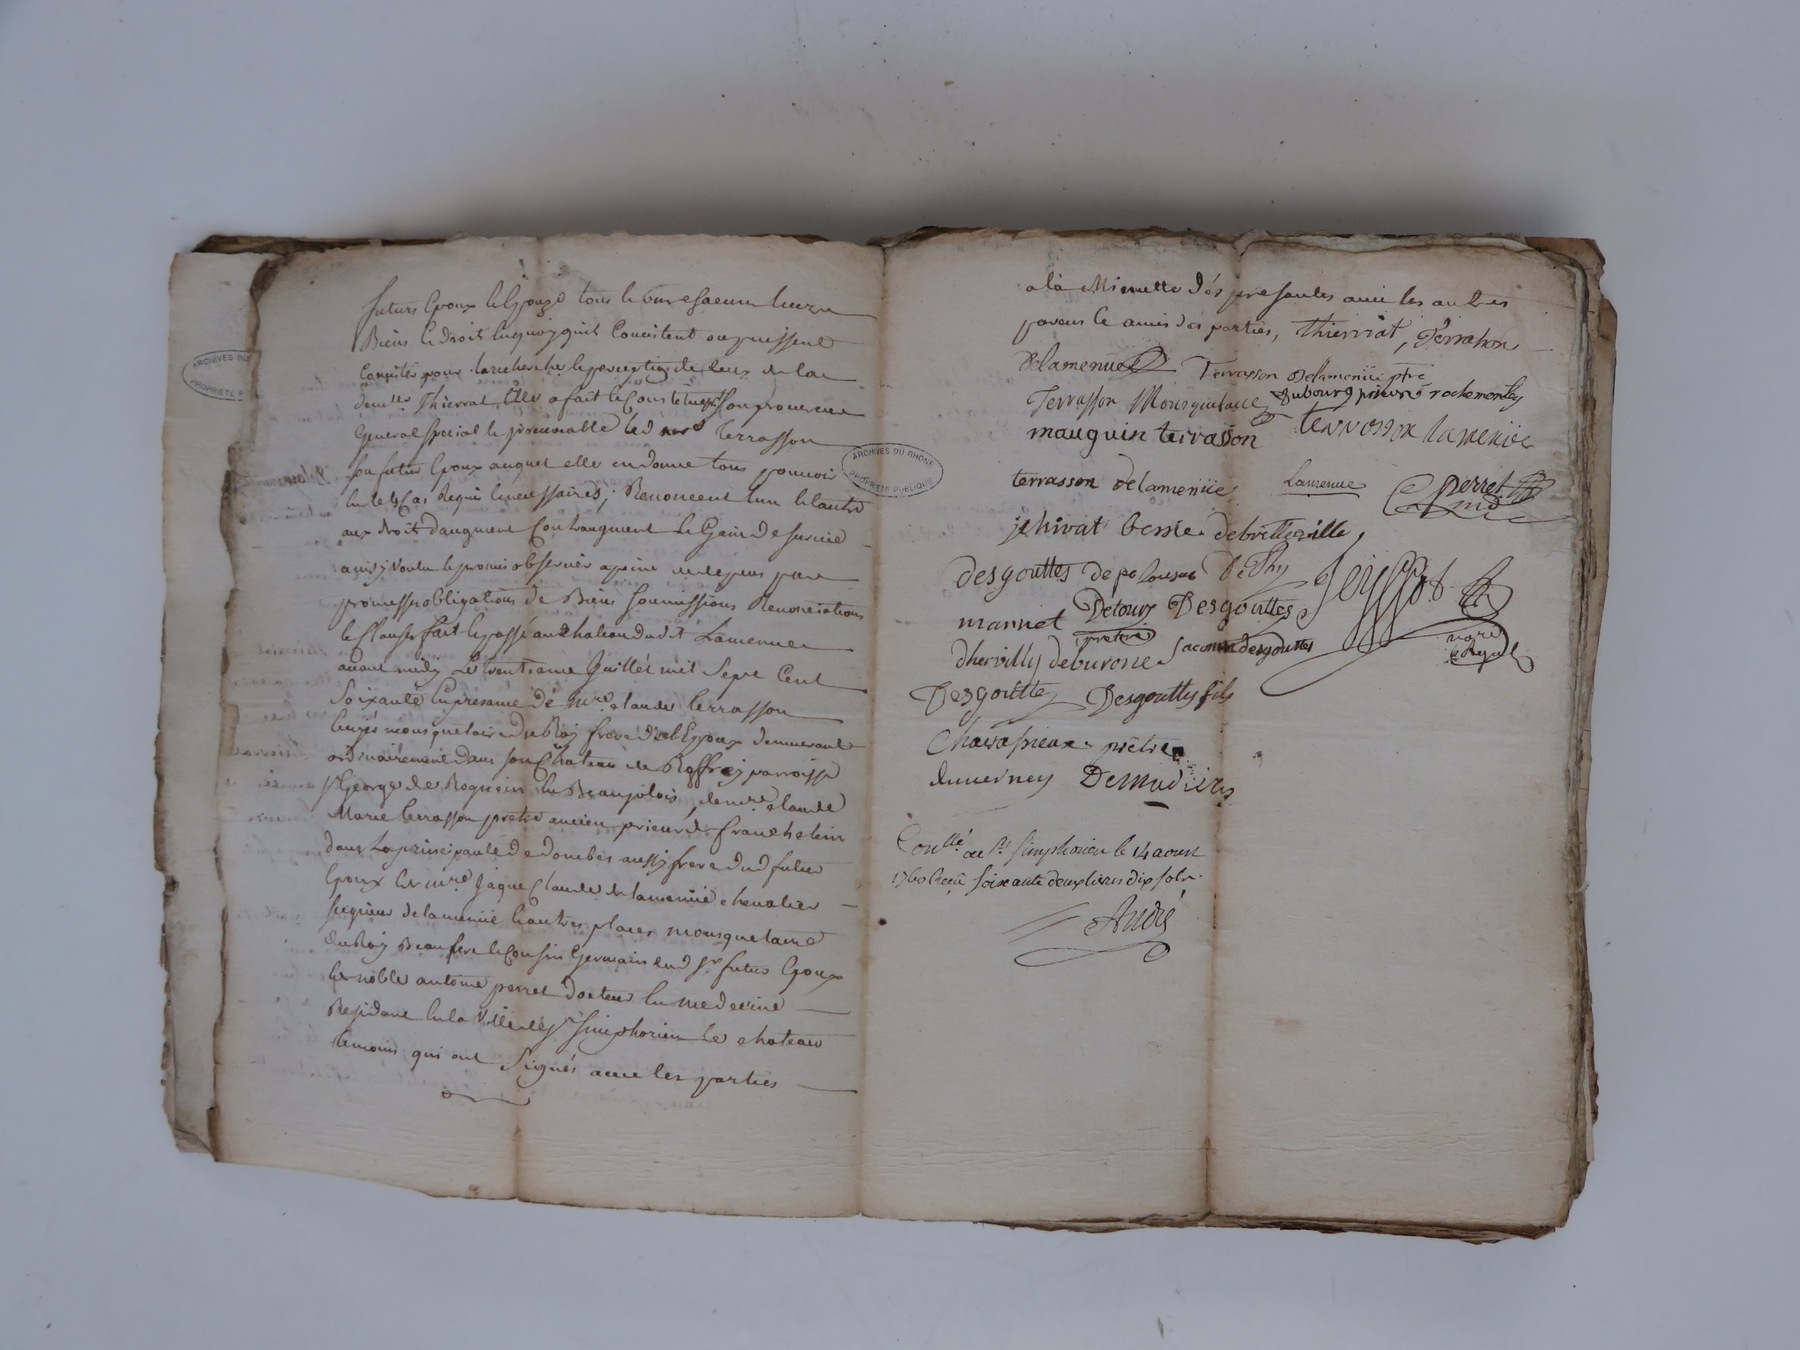 futurs Epoux Et Epouse tous et un chacun leurs
Biens et droits en quoy quils Consistent ou puissent
Consister pour la recherche et perception de ceux de lad
demlle Thierrat, Elle a fait et Constitué pr Son procureur
General Special et irrevocable led Terrasson
son futur Epoux auquel elle en donne tous pouvoirs
En tels Cas Requis et necessaires; Renoncent lun et lautre
aux droits daugment Contraugment et Gain de Survie
ainsy Voulu et promis observer a peine de depens par
promesses obligations de Biens Soumissions Renonciations
et Clauses fait et passé au Chateau dudit Lamenue
avant midy Le trentieme Juillet mil Sept Cent
Soixante En presence de mre Claude terrasson
mousquetaire du Roy frere dud Epoux demeurant
ordinairement dans son Chateau de Roffrey parroisse
St George de Rogneins En Beaujolois, de mre Claude
Marie terrasson pretre ancien prieur de francheleins
dans La principauté de dombes aussy frere dud futur
Epoux Et mre Jaque Claude de lamenüe chevalier
seigneur de lamenüe Et autres places mousquetaire
du Roy Beaufrere et Cousin Germain dud Sr futur Epoux
Et noble antoine perret docteur En medecine
Residant En la Ville de St Simphorien le chateau
temoins qui ont Signés avec les parties
ARCHIVES DU
PROPRIETE P
ARCHIVES DU RHONE
PROPRIETE PUBLIQUE
a la Minutte des presentes avec les autres
parens et amis des parties, Thierriat, Terrasson
Delamenüe Terrasson Delamenüe ptre
Terrasson Mousquetaire Dubourg prieur rochemonteg
mauguin terrasson terrasson lamenüe
terrasson delamenüe Lamenue perret md
jehivat bessie debretteville
desgouttes de
mannet Detours Desgouttes
pretre
dhervilly deburone Jacomin desgouttes
nore
Royal
Desgouttes Desgouttes fils
prêtre
duverney Demadieres
Conllé a St Simphorien le 14 aoust
1760 Reçu soixante deux livres dix sols
André